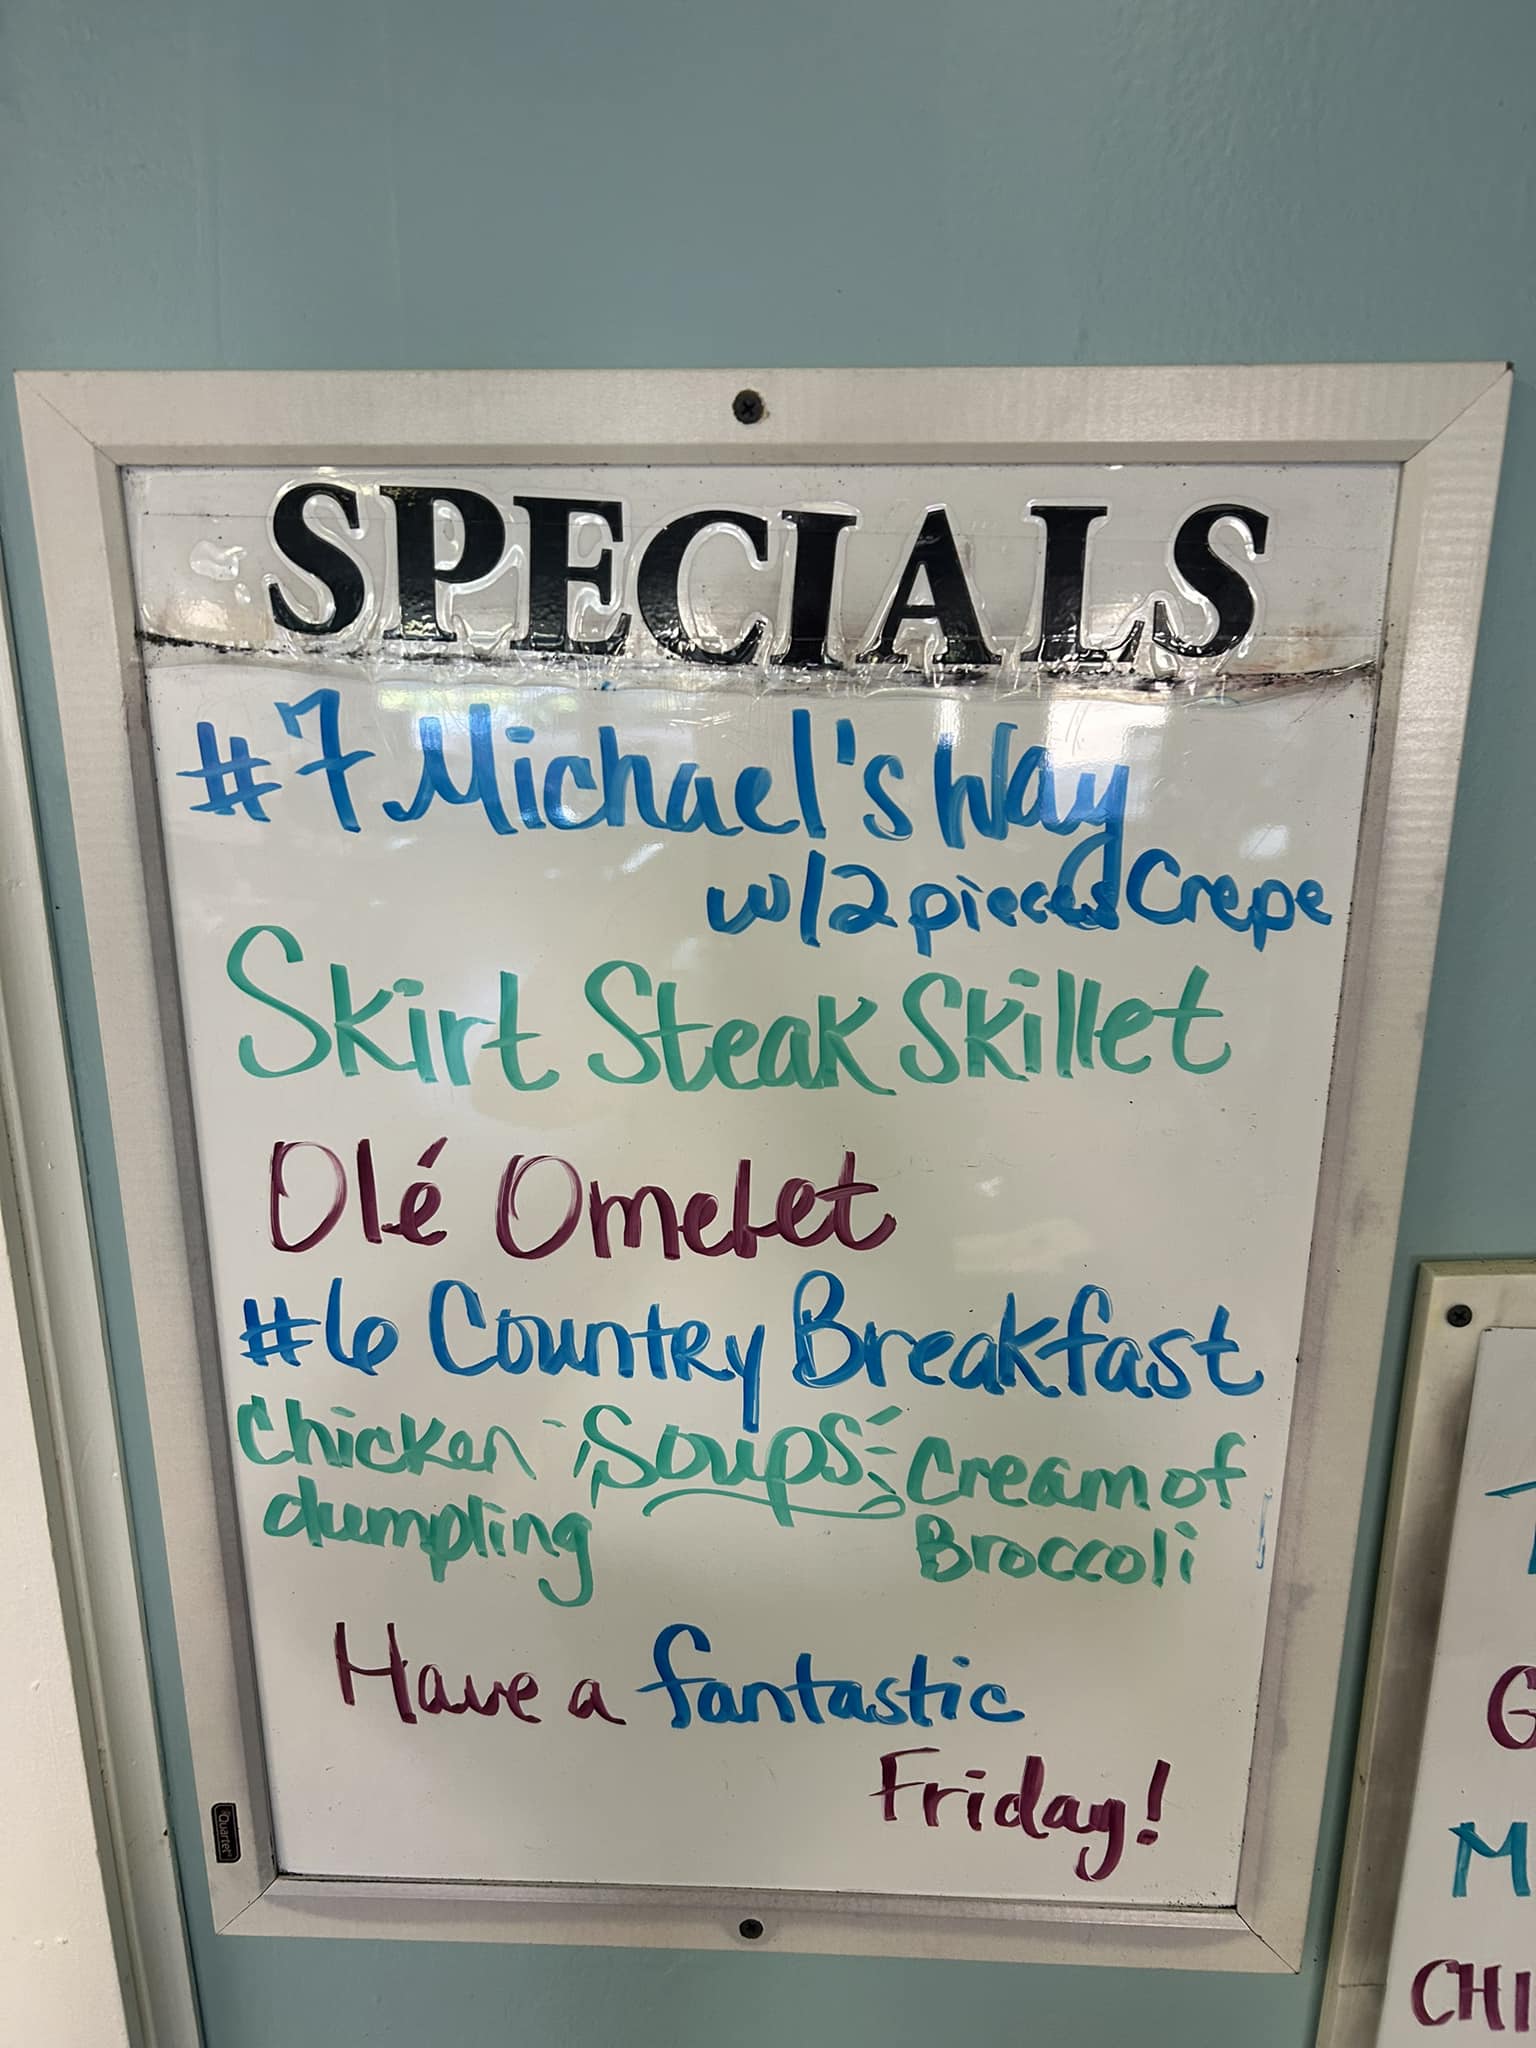 SPECIALS
#7 Michael's Way
w/2 pieces Crepe
Skirt Steak Skillet
Olé Omelet
#6 Country Breakfast
Chicken Soups: Cream of
dumpling Broccoli
Have a fantastic
Friday!
Quartet
G
M
CHI